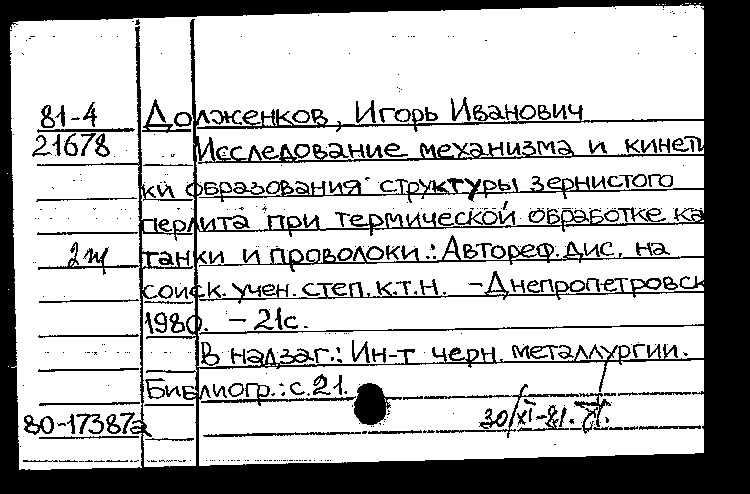 81-4 Долженков, Игорь Иванович
21678 Исследование механизма и кинети
ки образования структуры зернистого
перлита при термической обработке ка
танки и проволоки.: Автореф. дис. на
соиск. учен. степ. к.т.н. -Днепропетровск
1980. - 21с.
В надзаг.: Ин-т черн. металлургии.
Библиогр.: с. 21.
80-17387а 30/XI-81.